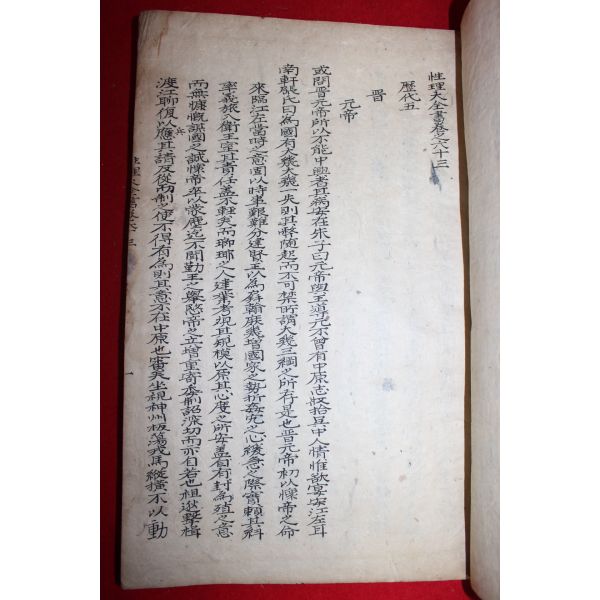 性理大全書卷之六十三
歷代五
晋
元帝
或問晋元帝所以不能中興者其病安在朱子曰元帝與王導元不曾有中原志收拾吳中人情惟欲宴安江左耳
南軒張氏曰為國有大幾大幾一失則其弊隨起而不可禁所謂大幾三綱之所存是也晋元帝初以懷帝之命
來臨江左當時之意固以時事艱難分建賢王以為屛翰庶幾增國家之勢折姦宄之心緩急之際實賴其糾
率義旅入衛王室其責任盖不輕矣而琅琊之入建業考觀其規模以原其心度之所安盖自有封為殖之意
而無慷慨謀國之誠懷帝卒以蒙塵迄不聞勤王之擧愍帝之立增重寄委制詔深切而亦自若也祖逖擊楫
渡江聊復以兵應其請反從而制之使不得有為則其意不在中原也審矣坐視神州板蕩戎馬縱橫不以動
性理大全書卷六十三
一